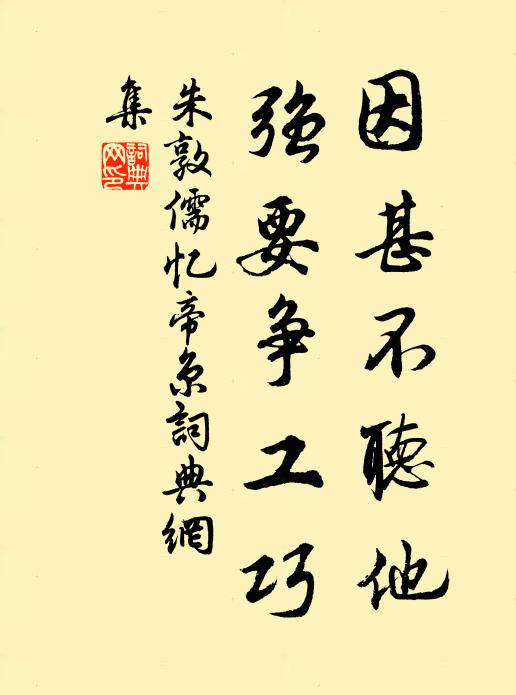 因甚不聽他
強要爭工巧
朱敦儒忆帝京詞典網
集
詞典
网印